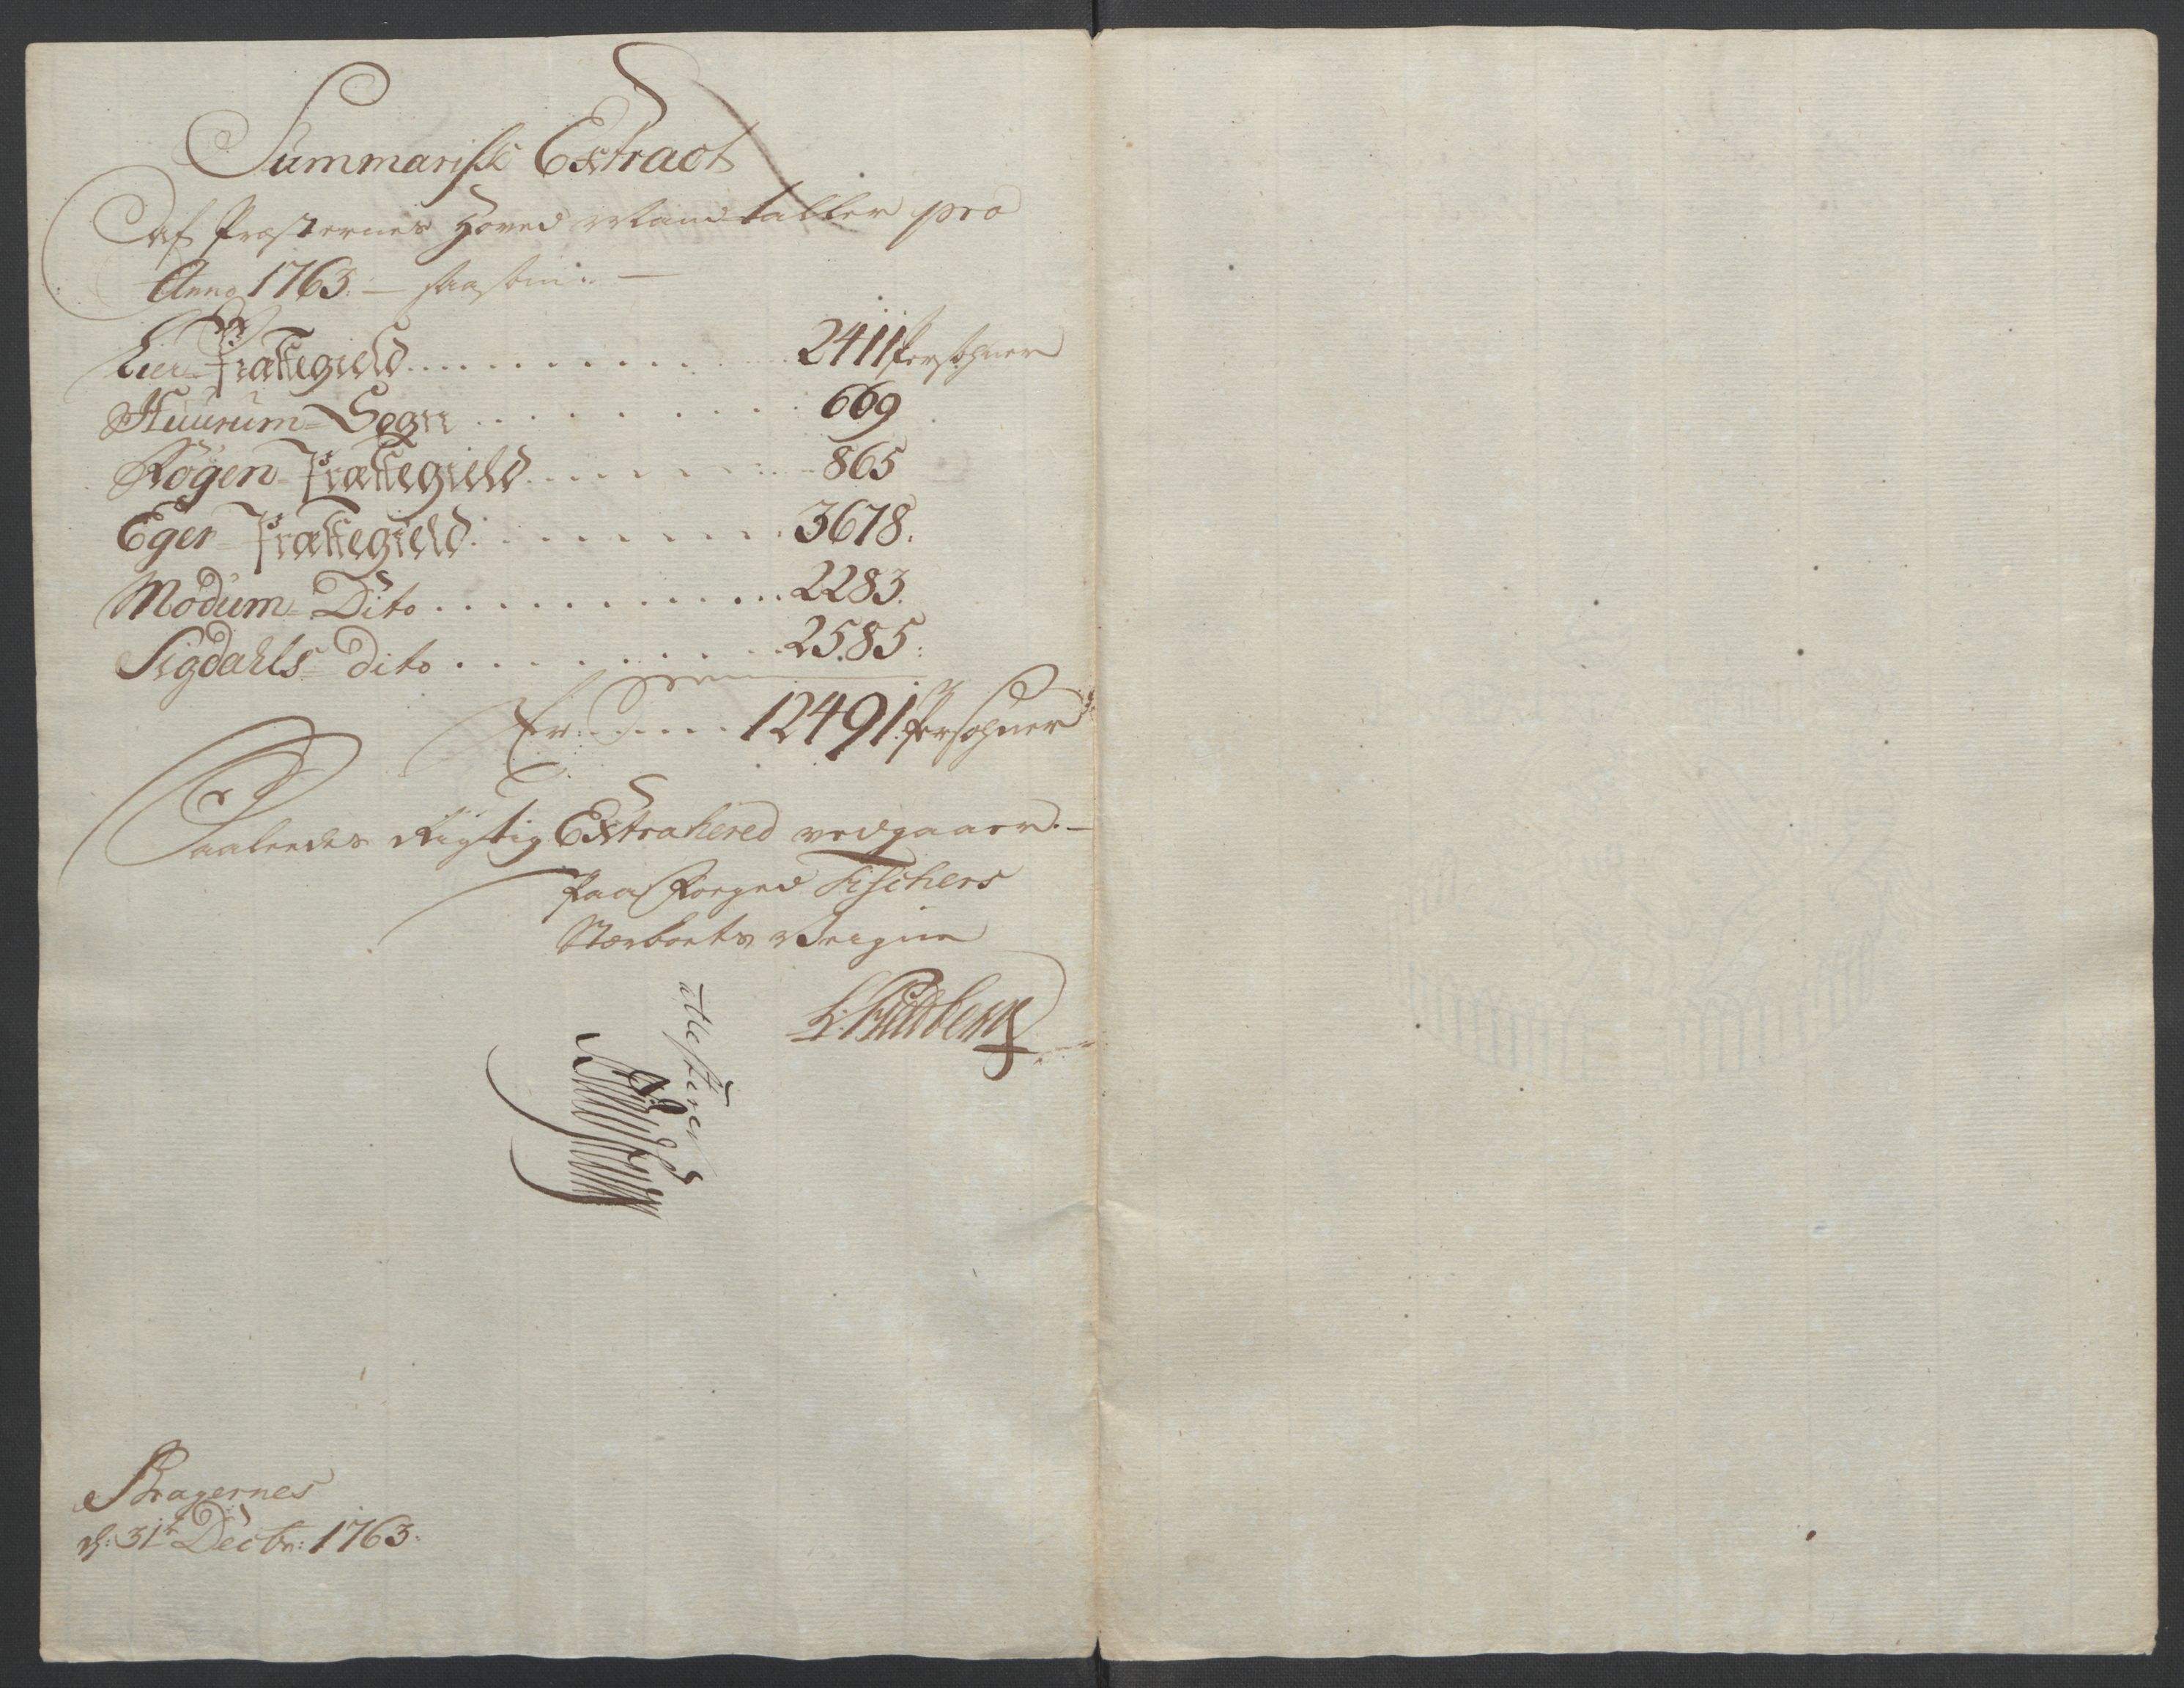 Summarisk Extract
Af Præsternes Hoved Mandtaller pro
Anno 1763. — saasom: —
Lier Præstegield . . . . . . . . . . . 2411 Persohner
Huurum-Sogn . . . . . . . . . 669
Røgen Præstegield . . . . . . . . 865
Eger Præstegield . . . . . . . . . 3678.
Modum Dito . . . . . . . . . . . . 2283.
Sigdahls dito . . . . . . . . . 2585:
Er . . . . . 12491 Persohner
Saaledes Rigtig Extrahered vedgaaer. —
Paa Foged Fischers
Stærboets Veigne
atesterer
Bragernes
d: 31te Decbr: 1763.